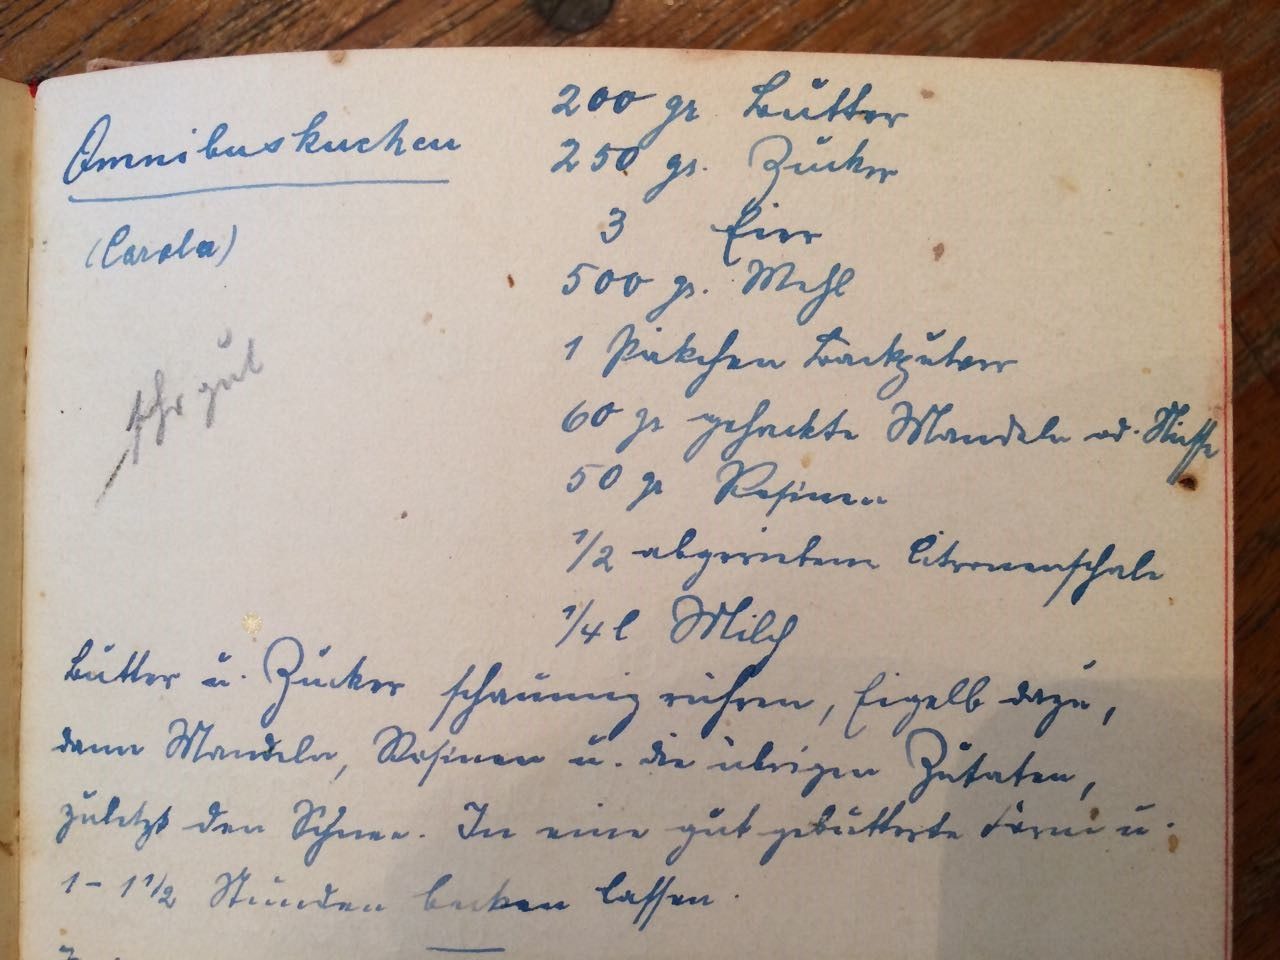 Omnibuskuchen
(Carola)
sehr gut
200 gr Butter
250 gr. Zucker
3 Eier
500 gr. Mehl
1 Päkchen Backpulver
60 gr gehackte Mandeln od. Nüsse
50 gr Rosinen
1/2 abgeriebene Citronenschale
1/4 l Milch
Butter u. Zucker schaumig rühren, Eigelb dazu,
dann Mandeln, Rosinen u. die übrigen Zutaten,
zuletzt den Schnee. In eine gut gebutterte Form u.
1 - 1 1/2 Stunden backen lassen.